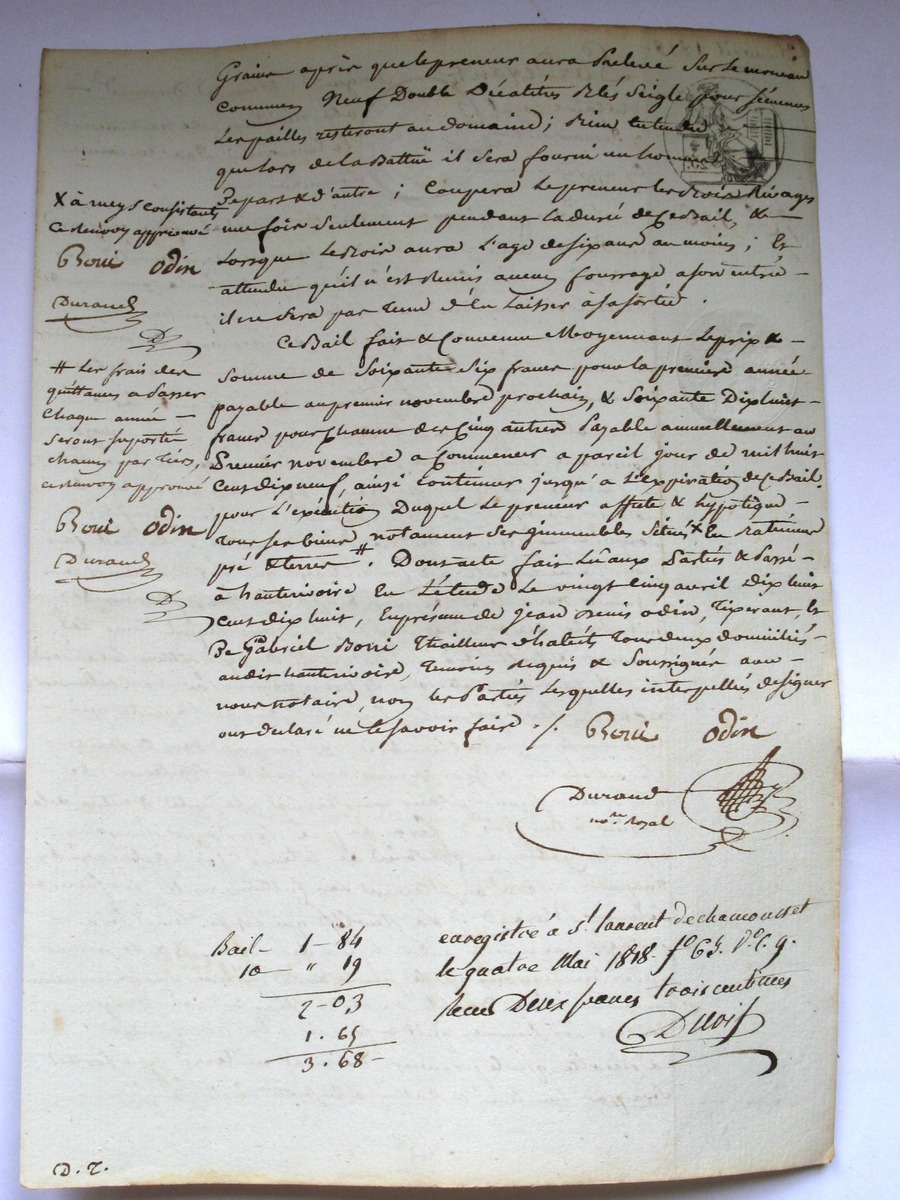 Grains après que le preneur aura prélevé sur le monceau
commun Neuf Double Décalitres Blés Seigle pour sémences
Les pailles resteront au domaine; Bien entendu
que lors de la Battue il sera fourni un homme
De part & d'autre; Coupera Le preneur les Bois Rivages
une fois seulement pendant la durée de Ce Bail, &
Lorsque Le Bois aura L'age de six ans au moins; Et
attendu qu'il n'est remis aucun fourrage a son entrée
il ne sera pas tenu d'en Laisser à sa sortie.
Ce Bail fait & Convenu Moyennant Le prix &
Somme de Soixante Six francs pour la première année
payable au premier novembre prochain, & Soixante Dix huit
francs pour Chacune des Cinq autres Payable annuellement au
Premier novembre a Commencer a pareil jour de mil huit
Cent dix neuf, ainsi Continuer jusqu'a L'expiration de Ce Bail.
pour L'exécution Duquel Le preneur affecte & hypotèque
Tous ses biens notament ses immeubles Situés X En
pré & terres #. Dont acte fait Lu aux Parties & Passé
à hauterivoire En L'étude Le vingt cinq avril Dix huit
Cent dix huit, En présence de jean Denis odin, Tixerant, Et
De Gabriel Boni Tailleur d'habits Tous deux domiciliés
audit hauterivoire, Temoins Requis & Soussignés avec
nous notaire, non les Parties Lesquelles interpellées de signer
ont déclaré ne le savoir faire ./. Boni odin
Durand
nore. Royal
X à meys Consistants
Ce Renvoy approuvé
Boni odin
Durand
D
# Les frais des
quittances a Passer
Chaque année
Seront suporté
chacun par Tiers,
Ce Renvoy approuvé
Boni odin
Durand
D
Bail 1 - 84
10 " 19
2 - 03
1. 65
3. 68 -
enregistré à St. laurent de chamousset
le quatre Mai 1818. fo 65. Vo. C. 9.
Recu Deux francs trois centimes
D. T.